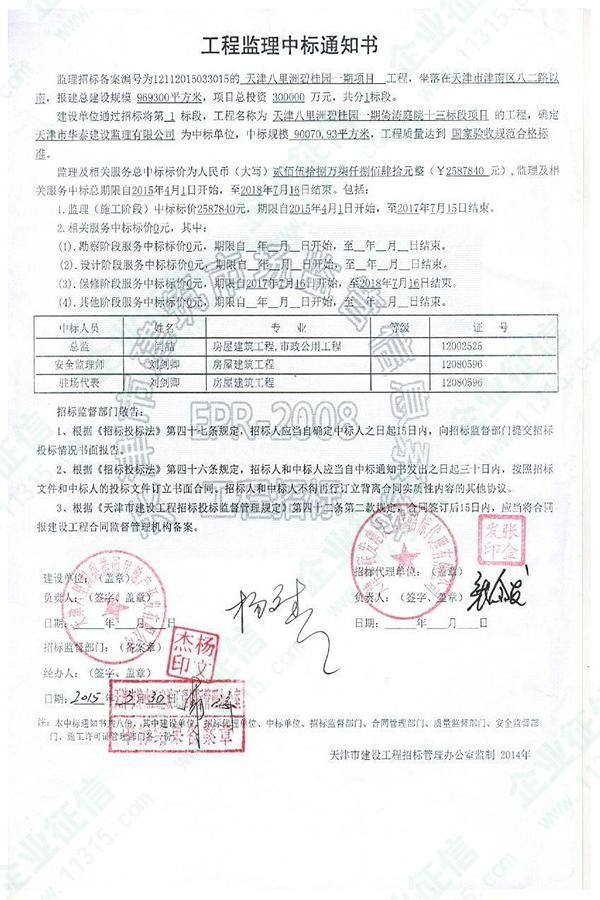 工程监理中标通知书
监理招标备案编号为12112015033015的 天津八里洲碧桂园一期项目 工程，坐落在天津市津南区八二路以
南，报建总建设规模 969300平方米，项目总投资 300000 万元，共分1标段。
建设单位通过招标将第 1 标段，工程名称为 天津八里洲碧桂园一期倚涛庭院十三标段项目 的工程，确定
天津市华泰建设监理有限公司 为中标单位，中标规模 90070.93平方米，工程质量达到 国家验收规范合格标
准。
监理及相关服务总中标标价为人民币（大写）贰佰伍拾捌万柒仟捌佰肆拾元整（￥2587840 元），监理及相
关服务中标总期限自2015年4月1日开始，至2018年7月16日结束。包括：
1.监理（施工阶段）中标标价2587840元，期限自2015年4月1日开始，至2017年7月15日结束。
2.相关服务中标标价0元，其中：
(1).勘察阶段服务中标标价0元，期限自__年__月__日开始，至__年__月__日结束。
(2).设计阶段服务中标标价0元，期限自__年__月__日开始，至__年__月__日结束。
(3).保修阶段服务中标标价0元，期限自2017年7月16日开始，至2018年7月16日结束。
(4).其他阶段服务中标标价0元，期限自__年__月__日开始，至__年__月__日结束。
中标人员 姓名 专 业 等级 证 号
总监 闫喆 房屋建筑工程,市政公用工程 12002525
安全监理师 刘剑卿 房屋建筑工程 12080596
驻场代表 刘剑卿 房屋建筑工程 12080596
招标监督部门敬告：
EPR-2008
1、根据《招标投标法》第四十七条规定，招标人应当自确定中标人之日起15日内，向招标监督部门提交招标
投标情况书面报告。
2、根据《招标投标法》第四十六条规定，招标人和中标人应当自中标通知书发出之日起三十日内，按照招标
文件和中标人的投标文件订立书面合同。招标人和中标人不得再行订立背离合同实质性内容的其他协议。
工程招标
3、根据《天津市建设工程招标投标监督管理规定》第四十二条第二款规定，合同签订后15日内，应当将合同
报建设工程合同监督管理机构备案。
张金发印
建设单位：（盖章） 招标代理单位：（盖章）
负责人：（签字、盖章） 负责人：（签字、盖章）
日期：__年__月__日 日期：__年__月__日
招标监督部门：（备案章）
杨文杰印
经办人：（签字、盖章）
日期：2015年3月30日
注：本中标通知书共八份，其中建设单位、招标代理单位、中标单位、招标监督部门、合同管理部门、质量监督部门、安全监督部
门、施工许可证管理部门各一份。
天津市建设工程招标管理办公室监制 2014年
企业征信
www.11315.com